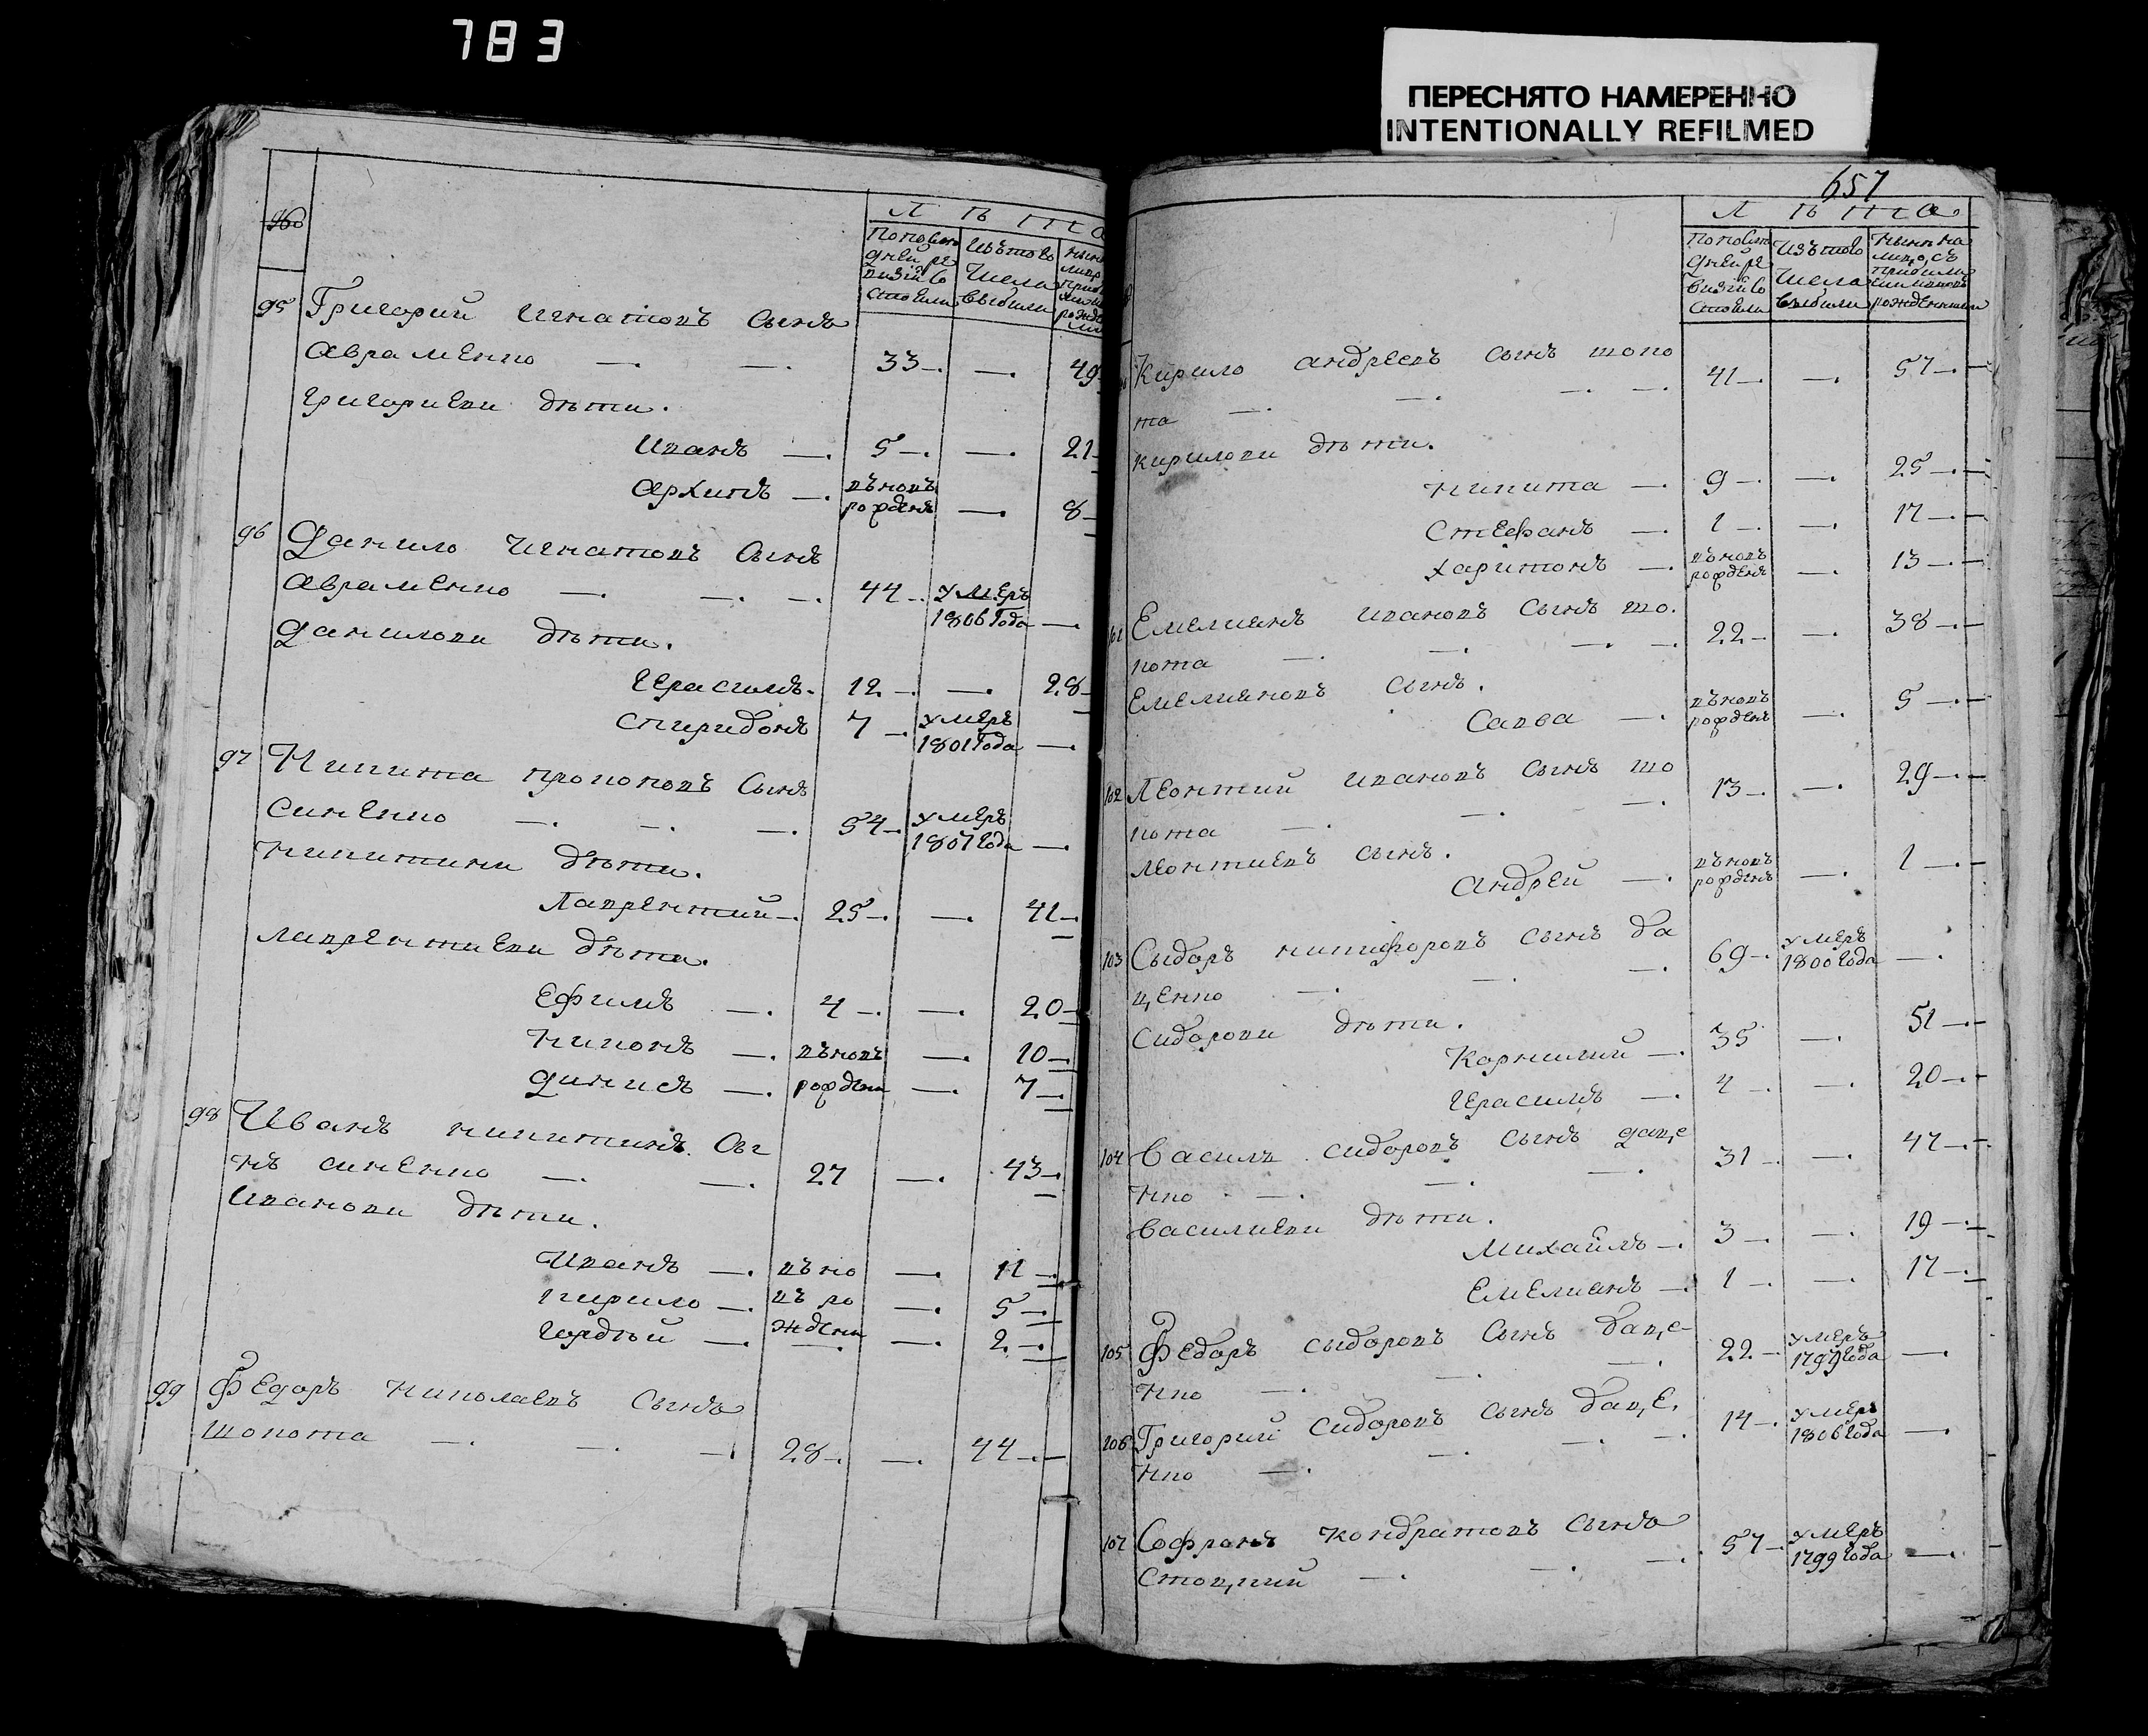 783
ПЕРЕСНЯТО НАМЕРЕННО
INTENTIONALLY REFILMED
Л Ѣ Т А
По послѣ
дней ре
визіи со
стояли
Изъ того
числа
выбыли
95 Григорий Игнатовъ Сынъ
Авраменко — — 33 — 49
Григориеви дѣти.
Иванъ — 5 — — 21
Архипъ — въновь
рожденъ — 8
96 Данило Игнатовъ Сынъ
Авраменко — — — 44 — умеръ
1806 Года —
Данилови дѣти.
Герасимъ 12 — — 28
Спиридонъ 7 — умеръ
1801 Года —
97 Никита прокоповъ Сынъ
Синенко — — — 54 — умеръ
1807 Года —
Никитини дѣти.
Лаврентий — 25 — — 41
лаврентиеви дѣти.
Ефимъ — 4 — — 20
Никонъ — въновь — 10
Динисъ — рождени — 7
98 Иванъ никитинъ Сы
нъ синенко — — 27 — 43
Иванови дѣти.
Иванъ — въно — 11
Кирило — въ ро — 5
Гордѣй — ждени — 2
99 Федоръ Николаевъ Сынъ
шокота — — — 28 — — 44
657
Л Ѣ Т А
По послѣ
дней ре
визіи со
стояли
Изъ того
числа
выбыли
Нынѣ на
лицо съ
рожденними
Кирило андреевъ сынъ шоко 41 — — 57
та — — — —
кирилови дѣти.
Никита — 9 — — 25
Стефанъ — 1 — — 17
Харитонъ — въновь
рожденъ — 13
101 Емелиянъ ивановъ сынъ шо. 22 — — 38
кота — — — —
Емелияновъ сынъ.
Савва — въновь
рожденъ — 5
102 Леонтий ивановъ сынъ шо 13 — — 29
кота — — —
леонтиевъ сынъ.
андрей — въновь
рожденъ — 1
103 Сыдоръ никифоровъ сынъ да 69 — умеръ
1800 Года —
ценко — — —
Сидорови дѣти.
Корнилий — 35 — 51
Герасимъ — 4 — — 20
104 Василь сидоровъ сынъ даце 31 — — 47
нко — — —
василиеви дѣти.
Михайлъ — 3 — — 19
Емелиянъ — 1 — — 17
105 Федоръ сыдоровъ Сынъ даце- 22 — умеръ
1799 Года —
нко — — —
106 Григорий Сидоровъ сынъ даце. 14 — умеръ
1806 Года —
нко — — — —
107 Софронъ кондратовъ сынъ
57 — умеръ
1799 Года —
Стоцкий — — —